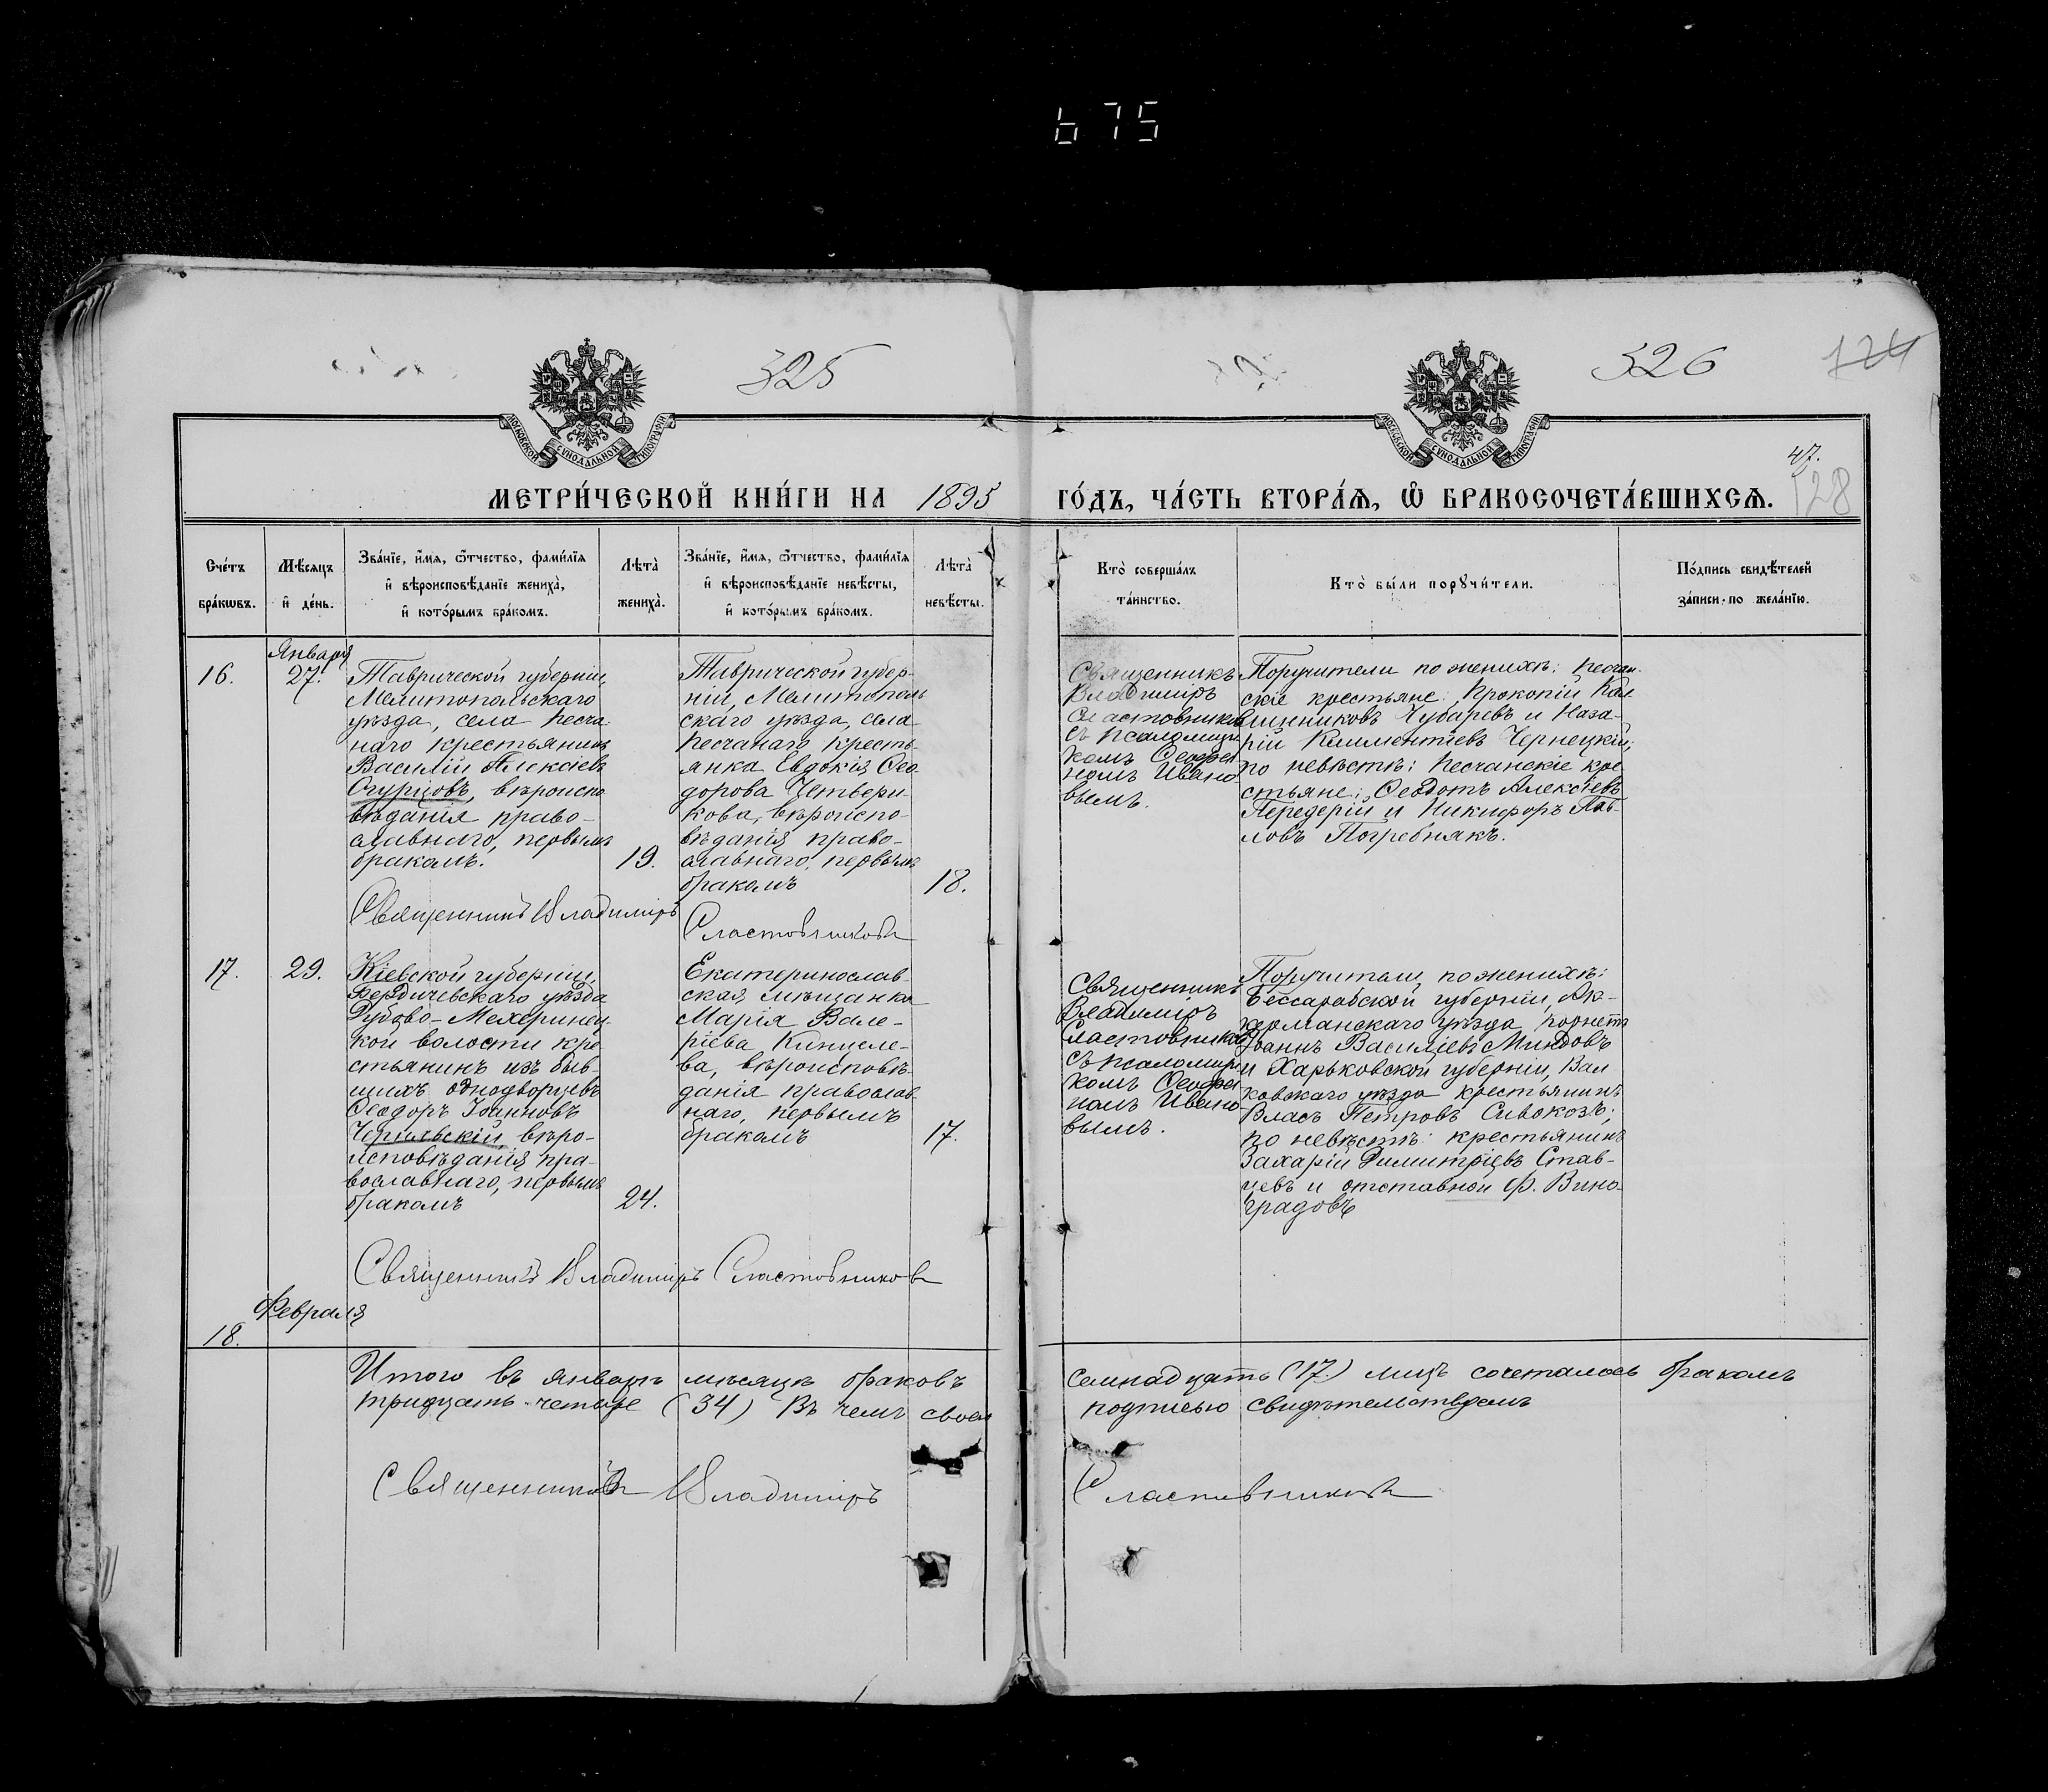 675
325
326
124
МОСКОВСКОЙ СѴНОДАЛЬНОЙ ТИПОГРАФІИ
МОСКОВСКОЙ СѴНОДАЛЬНОЙ ТИПОГРАФІИ
47.
128
МЕТРИ́ЧЕСКОЙ КНИ́ГИ НА 1895 ГО́ДЪ, ЧА́СТЬ ВТОРА́Ѧ, Ѡ҆ БРАКОСОЧЕТА́ВШИХСѦ.
Сче́тъ
бра́кѡвъ.
Мѣ́сяцъ
и҆ де́нь.
Зва́нїе, и҆́мѧ, ѻ҆́тчество, фами́лїѧ
и҆ вѣроисповѣ́данїе жениха̀,
и҆ кото́рымъ бра́комъ.
Лѣта̀
жениха̀.
Зва́нїе, и҆́мѧ, ѻ҆́тчество, фами́лїѧ
и҆ вѣроисповѣ́данїе невѣ́сты,
и҆ кото́рымъ бра́комъ.
Лѣта̀
невѣ́сты.
Кто̀ соверша́лъ
та́инство.
Кто̀ бы́ли порꙋчи́тели.
По́дпись свидѣ́телей
за́писи по жела́нїю.
Января
16.
27.
Таврической губерніи,
Мелитопольскаго
уѣзда, села Песча-
наго крестьянинъ
Василій Алексіевъ
Огурцовъ, вѣроиспо
вѣданія право-
славнаго, первымъ
бракомъ.
19.
Таврической губер-
ніи, Мелитополь
скаго уѣзда, села
Песчанаго кресть-
янка Евдокія Ѳео-
дорова Четвери
кова, вѣроиспо-
вѣданія право-
славнаго, первымъ
бракомъ
18.
Священникъ
Владиміръ
Сластовниковъ
съ псаломщи-
комъ Ѳеофа
номъ Ивано-
вымъ.
Поручители по женихѣ: песчан-
скіе крестьяне: Прокопій Кал
линниковъ Чубаревъ и Наза-
рій Климентіевъ Чернецкій;
по невѣстѣ: Песчанскіе кре-
стьяне: Ѳеодотъ Алексіевъ
Передерій и Никифоръ Пав-
ловъ Погребнякъ.
Священникъ Владиміръ
Сластовниковъ
17.
29.
Кіевской губерніи,
Бердичевскаго уѣзда
Дубово-Мехеринец-
кой волости кре-
стьянинъ изъ быв-
шихъ однодворцевъ
Ѳеодоръ Іоанновъ
вѣро-
исповѣданія пра-
вославнаго, первымъ
бракомъ
24.
Екатеринослав-
ская мѣщанка
Марія Вале-
ріева
ва, вѣроисповѣ-
данія православ-
наго, первымъ
бракомъ
17.
Священникъ
Владиміръ
Сластовниковъ
съ псаломщи
комъ Ѳеофа
номъ Ивано-
вымъ.
Поручители по женихѣ:
Бессарабской губерніи, Ак-
керманскаго уѣзда корнетъ
Іоаннъ Василіевъ Миндовъ
и Харьковской губерніи, Вал
ковскаго уѣзда крестьянинъ
Власъ Петровъ Сивокозъ;
по невѣстѣ: крестьянинъ
Захарій Димитріевъ Став-
цевъ и отставной Ф. Вино-
градовъ
Священникъ Владиміръ Сластовниковъ
Февраля
18.
Итого въ январѣ мѣсяцѣ браковъ семнадцать (17.) лицъ сочеталось бракомъ
тридцать-четыре (34) Въ чемъ своею подписью свидѣтельствуемъ
Священникъ Владиміръ Сластовниковъ